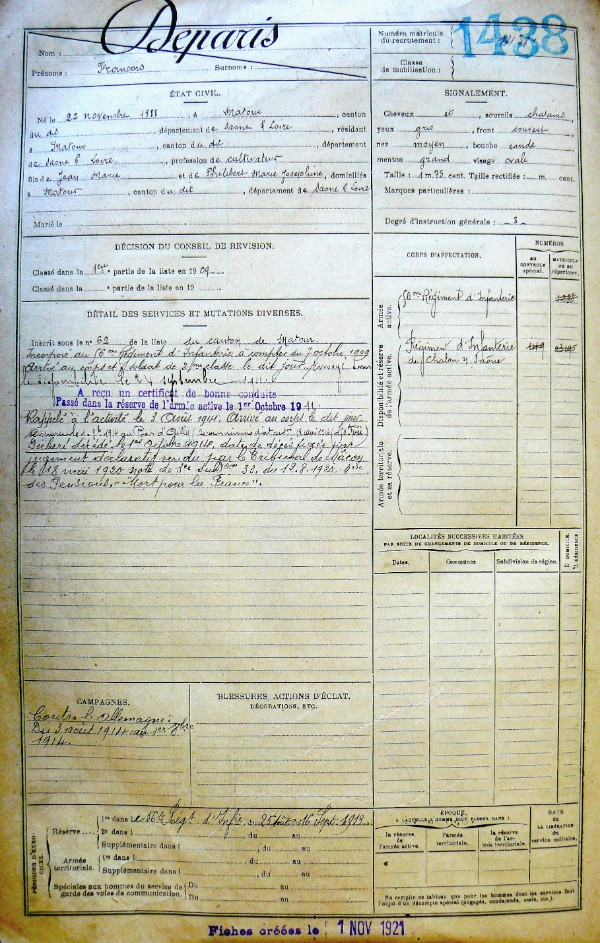 Nom : Deparis
Prénoms : François Surnoms :
Numéro matricule
du recrutement :
1438
Classe
de mobilisation :
ÉTAT CIVIL.
Né le 22 novembre 1888, à Matour, canton
du dit, département de Saone & Loire, résidant
à Matour, canton du dit, département
de Saone & Loire, profession de cultivateur
fils de Jean Marie et de Philibert Marie Joséphine, domiciliés
à Matour, canton du dit, département de Saone & Loire
Marié le
SIGNALEMENT.
Cheveux et, sourcils chatains
yeux gris, front ouvert
nez moyen, bouche ronde
menton grand visage ovale
Taille : 1 m. 75 cent. Taille rectifiée : m. cent.
Marques particulières :
Degré d'instruction générale : 3
DÉCISION DU CONSEIL DE REVISION.
Classé dans la 1ere partie de la liste en 1909
Classé dans la partie de la liste en 19
CORPS D'AFFECTATION.
NUMÉROS
AU CONTROLE spécial.
MATRICULE OU AU répertoire.
Armée active.
Régiment d'Infanterie
Disponibilité et réserve de l'armée active.
Régiment d'Infanterie
de Chalon s/ Saône
Armée territoriale et sa réserve.
DÉTAIL DES SERVICES ET MUTATIONS DIVERSES.
Inscrit sous le n° 62 de la liste du canton de Matour
Incorporé au Régiment d'Infanterie à compter du 7 octobre 1909
Arrivé au corps et soldat de 2me classe le dit jour
le 24 septembre 1911
A reçu un certificat de bonne conduite
Passé dans la réserve de l'armée active le 1er Octobre 1911
Rappelé à l'activité le 3 Août 1914. Arrivé au corps le dit jour
Déclaré décédé le 1er Octobre 1914, date de décès fixée par
jugement déclaratif rendu par le Tribunal de Mâcon
le 18 mai 1920 32, du 19.8.1920
des Pensions. "Mort pour la France".
LOCALITÉS SUCCESSIVES HABITÉES
PAR SUITE DE CHANGEMENTS DE DOMICILE OU DE RÉSIDENCE.
Dates. Communes Subdivision de région. D. DOMICILE. R. RÉSIDENCE
CAMPAGNES.
Contre l'Allemagne:
Du 3 août 1914 au 1er 8bre
1914.
BLESSURES, ACTIONS D'ÉCLAT.
DÉCORATIONS, ETC.
PÉRIODES D'EXERCICES.
Réserve
1re dans le Régt d'Infie, du 25 août au 16 Sept. 1913
2e dans l , du au
Supplémentaire dans l , du au
Armée territoriale.
1re dans l , du au
Supplémentaire dans l , du au
Spéciales aux hommes du service de garde des voies de communication.
Du au
Du au
ÉPOQUE
A LAQUELLE L'HOMME DOIT PASSER DANS :
la réserve de l'armée active.
l'armée territoriale.
la réserve de l'armée territoriale.
DATE DE LA LIBÉRATION du service militaire.
Ne remplir ce tableau que pour les hommes dont les services font
l'objet d'un décompte spécial (engagés, condamnés, omis, etc.).
Fiches créées le 1 NOV 1921